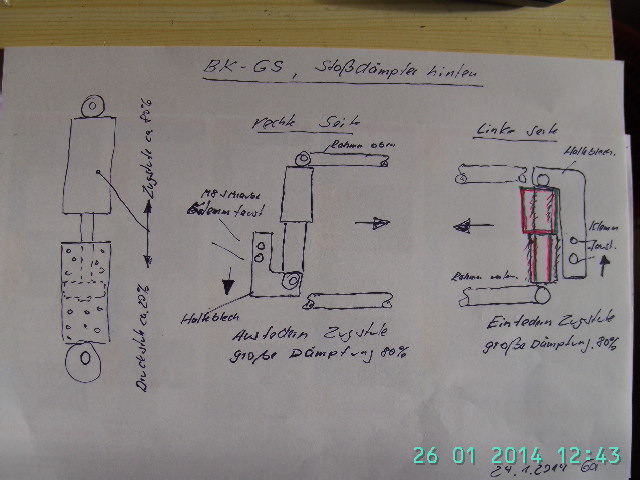 BK-GS, Stoßdämpfer hinten
Zugstufe ca. 80%
Druckstufe ca. 20%
rechte Seite
Rahmen oben
M8 Schraube
Klemmfaust
Halteblech
Ausfedern Zugstufe
große Dämpfung 80%
Linke Seite
Halteblech
Klemm
faust.
Rahmen unten
Einfedern Zugstufe
große Dämpfung. 80%
26 01 2014 12:43
24.1.2014